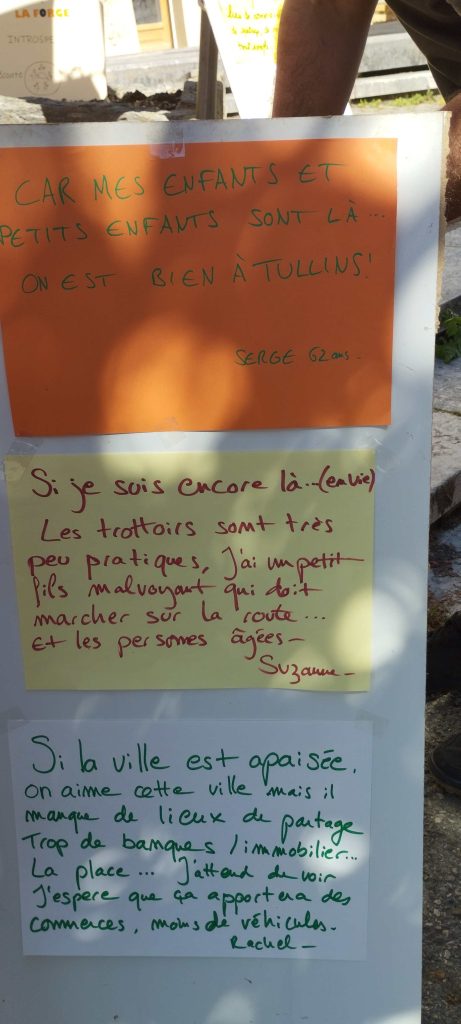 LA FORGE
INTROSPE
Écoute
CAR MES ENFANTS ET
PETITS ENFANTS SONT LÀ...
ON EST BIEN À TULLINS!
SERGE 62 ans.
Si je suis encore là...(en vie)
Les trottoirs sont très
peu pratiques, j'ai un petit
fils malvoyant qui doit
marcher sur la route...
Et les personnes âgées-
Suzanne-
Si la ville est apaisée,
on aime cette ville mais il
manque de lieux de partage
Trop de banques / immobilier...
La place... J'attend de voir
J'espère que ça apportera des
commerces, moins de véhicules.
Rachel-